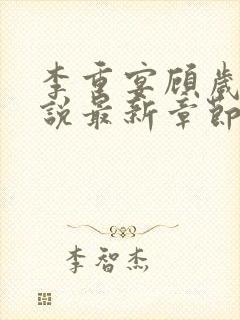 李重宴顾岁
说最新章节
李智杰